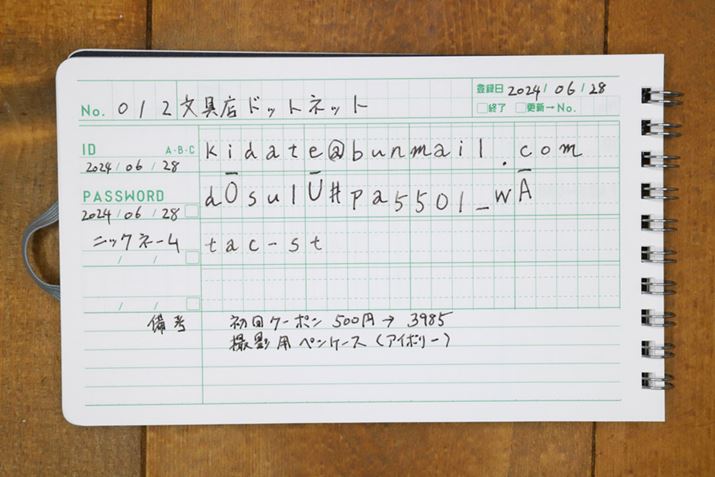 No. 012 文具店ドットネット 登録日 2024/06/28
□終了 □更新→No.
ID A・B・C kidate@bunmail.com
2024/06/28
PASSWORD dOsulU#pa5501_wA
2024/06/28
ニックネーム tac-st
/ /
/ /
備考 初回クーポン 500円→3985
撮影用ペンケース(アイボリー)